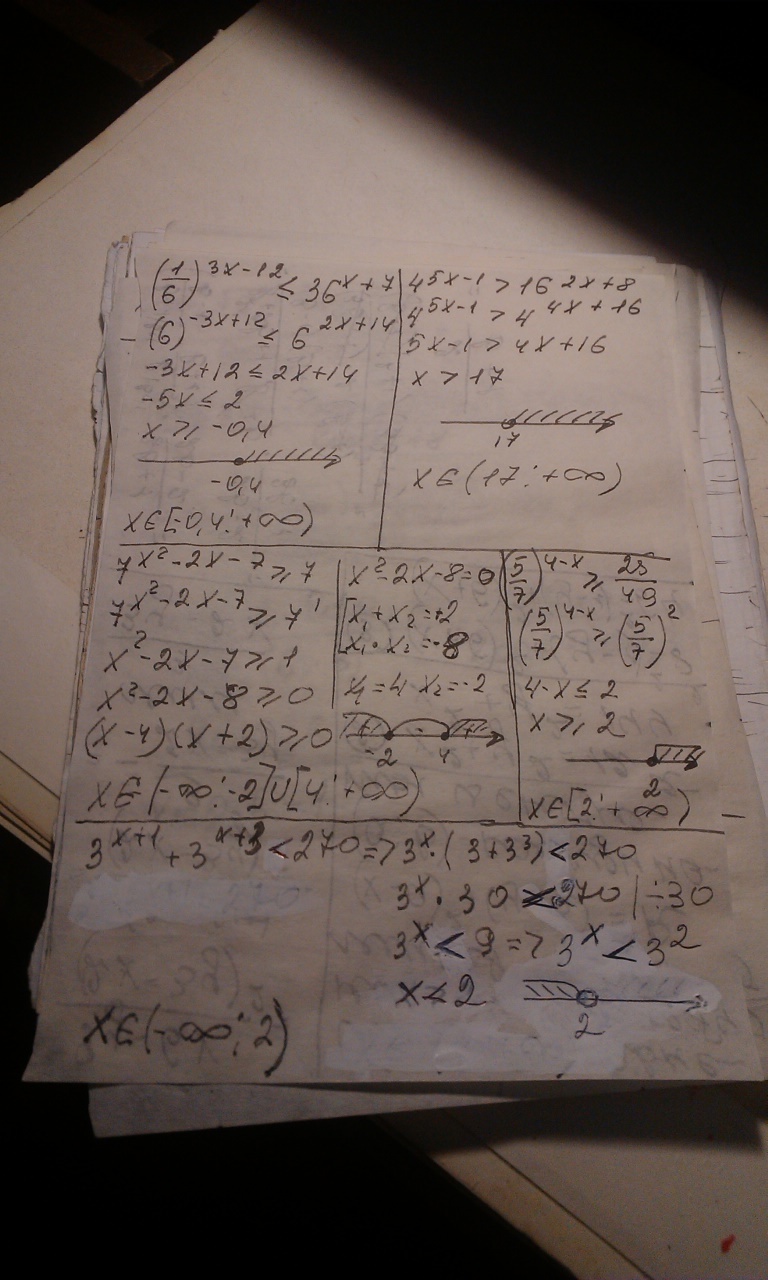 (1/6)^(3x-12) ≤ 36^(x+7)
(6)^(-3x+12) ≤ 6^(2x+14)
-3x+12 ≤ 2x+14
-5x ≤ 2
x ≥ -0,4
-0,4
x∈[-0,4; +∞)
4^(5x-1) > 16^(2x+8)
4^(5x-1) > 4^(4x+16)
5x-1 > 4x+16
x > 17
17
x∈(17; +∞)
7^(x²-2x-7) ≥ 7
7^(x²-2x-7) ≥ 7¹
x²-2x-7 ≥ 1
x²-2x-8 ≥ 0
(x-4)(x+2) ≥ 0
x²-2x-8=0
[x₁+x₂=+2
x₁·x₂=-8
x₁=4 x₂=-2
+ - +
-2 4
x∈(-∞; -2]∪[4; +∞)
(5/7)^(4-x) ≥ 25/49
(5/7)^(4-x) ≥ (5/7)²
4-x ≤ 2
x ≥ 2
2
x∈[2; +∞)
3^(x+1) + 3^(x+3) < 270 => 3^x·(3+3³) < 270
3^x·30 < 270 | ÷30
3^x < 9 => 3^x < 3²
x < 2
2
x∈(-∞; 2)